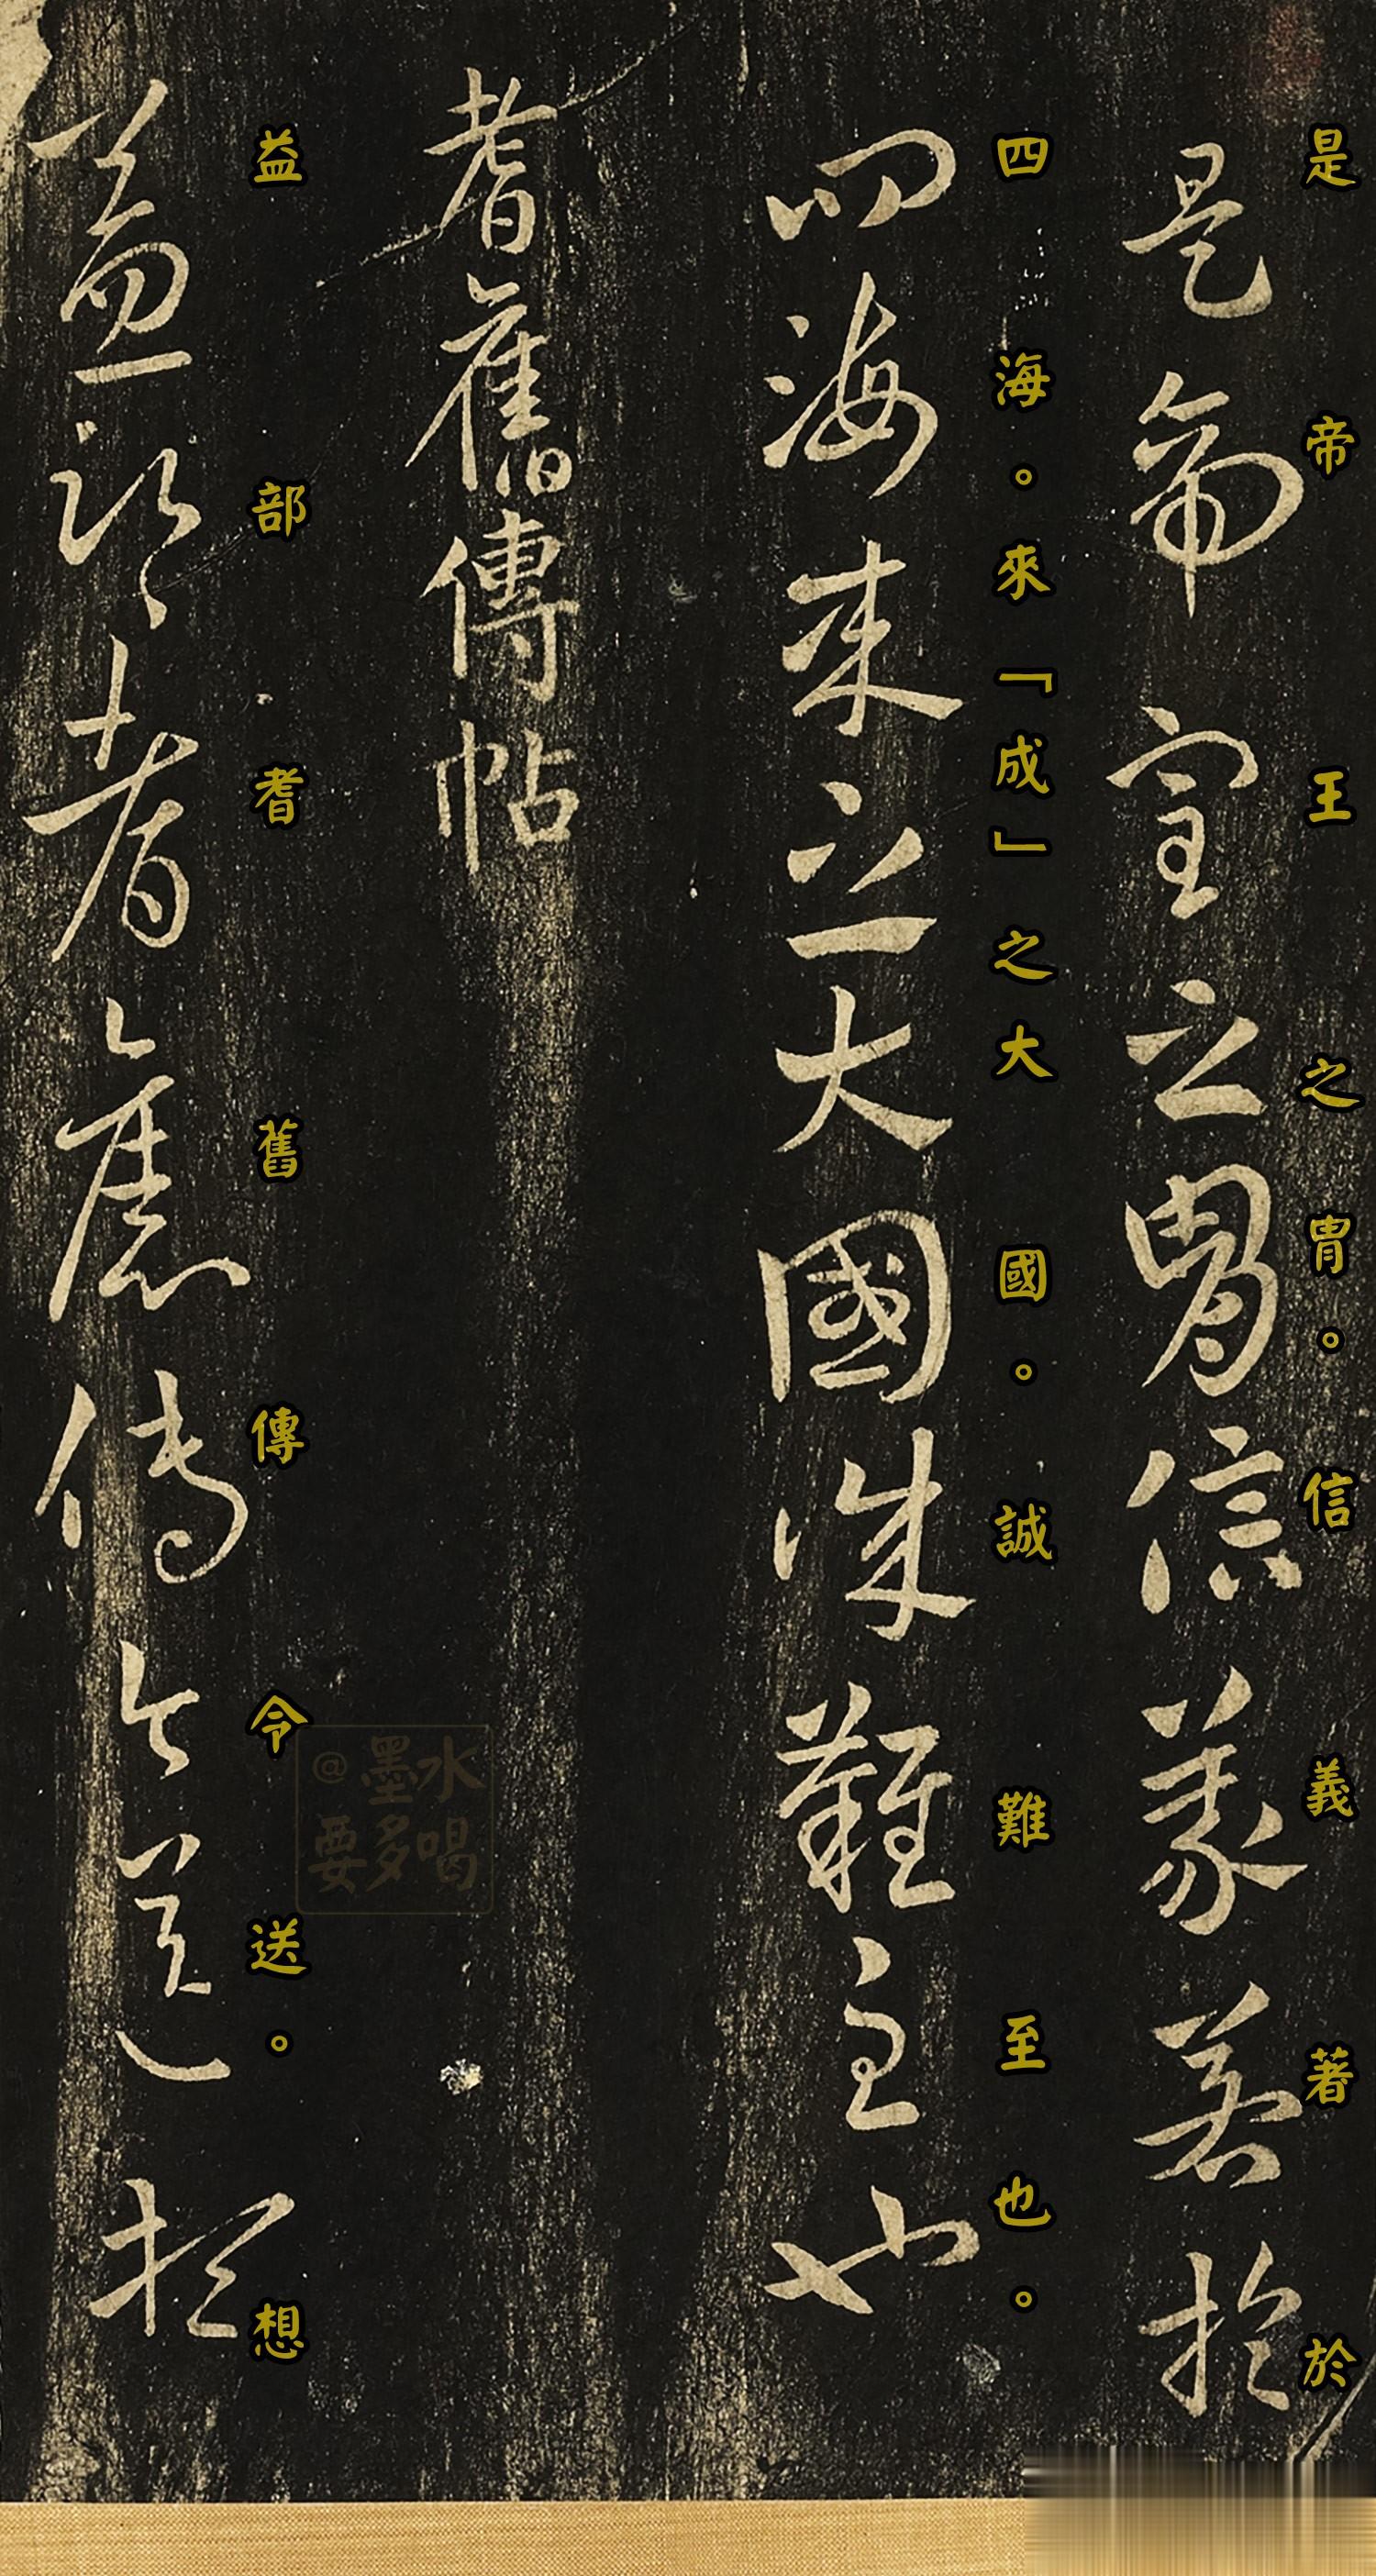 是帝王之胄。信義著於
是帝室之胄信義著於
四海。來「成」之大國。誠難至也。
四海来之大國誠難至也
耆舊傳帖
益部耆舊傳令送。想
益部耆舊傳令送想
@墨水
要多喝